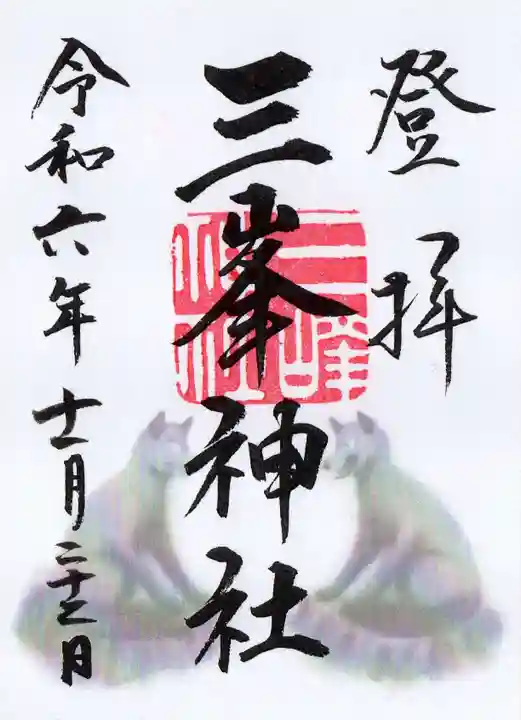 登拝
三峯神社
三峰神社
令和六年十一月二十二日